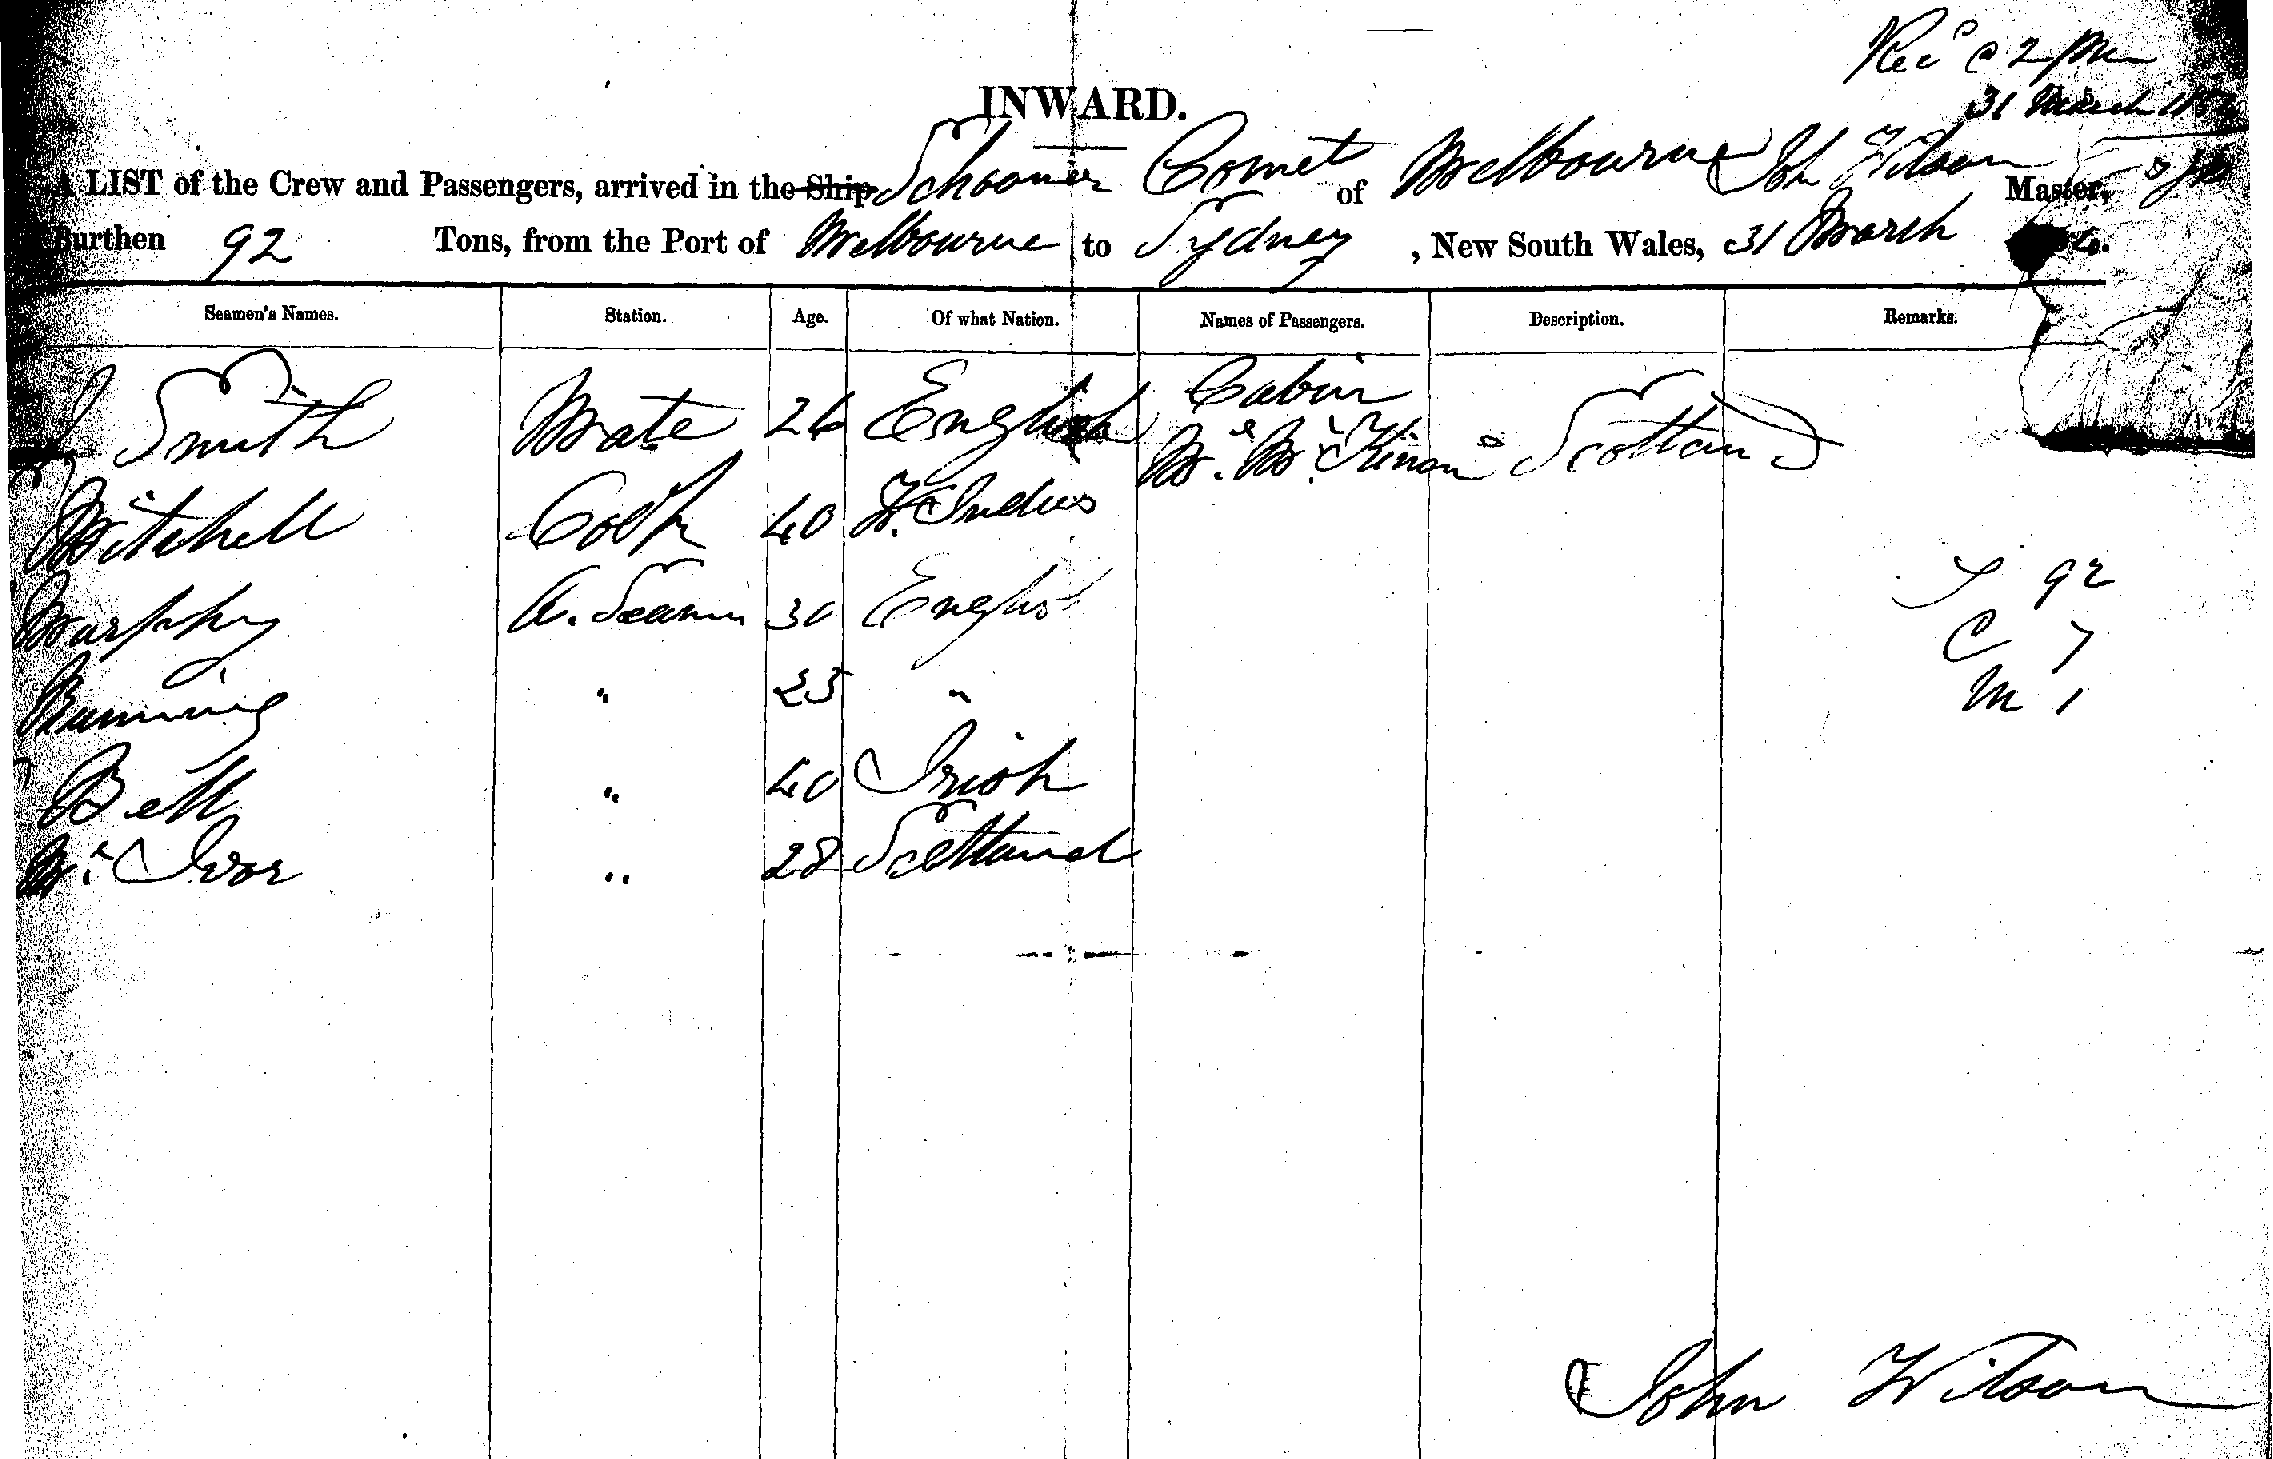 Recd @ 2 pm
31 March
INWARD.
A LIST of the Crew and Passengers, arrived in the Ship Schooner Comet of Melbourne John Wilson Master,
Burthen 92 Tons, from the Port of Melbourne to Sydney, New South Wales, 31 March
Seamen's Names. Station. Age. Of what Nation. Names of Passengers. Description. Remarks.
Cabin
Smith Mate 26 English Mr. Mc. Kinon Scotland
Mitchell Cook 40 W. Indies
Murphy A. Seaman 30 English T 92
C 7
Running " 25 " M 1
Bell " 40 Irish
Mc. Ivor " 28 Scotland
John Wilson